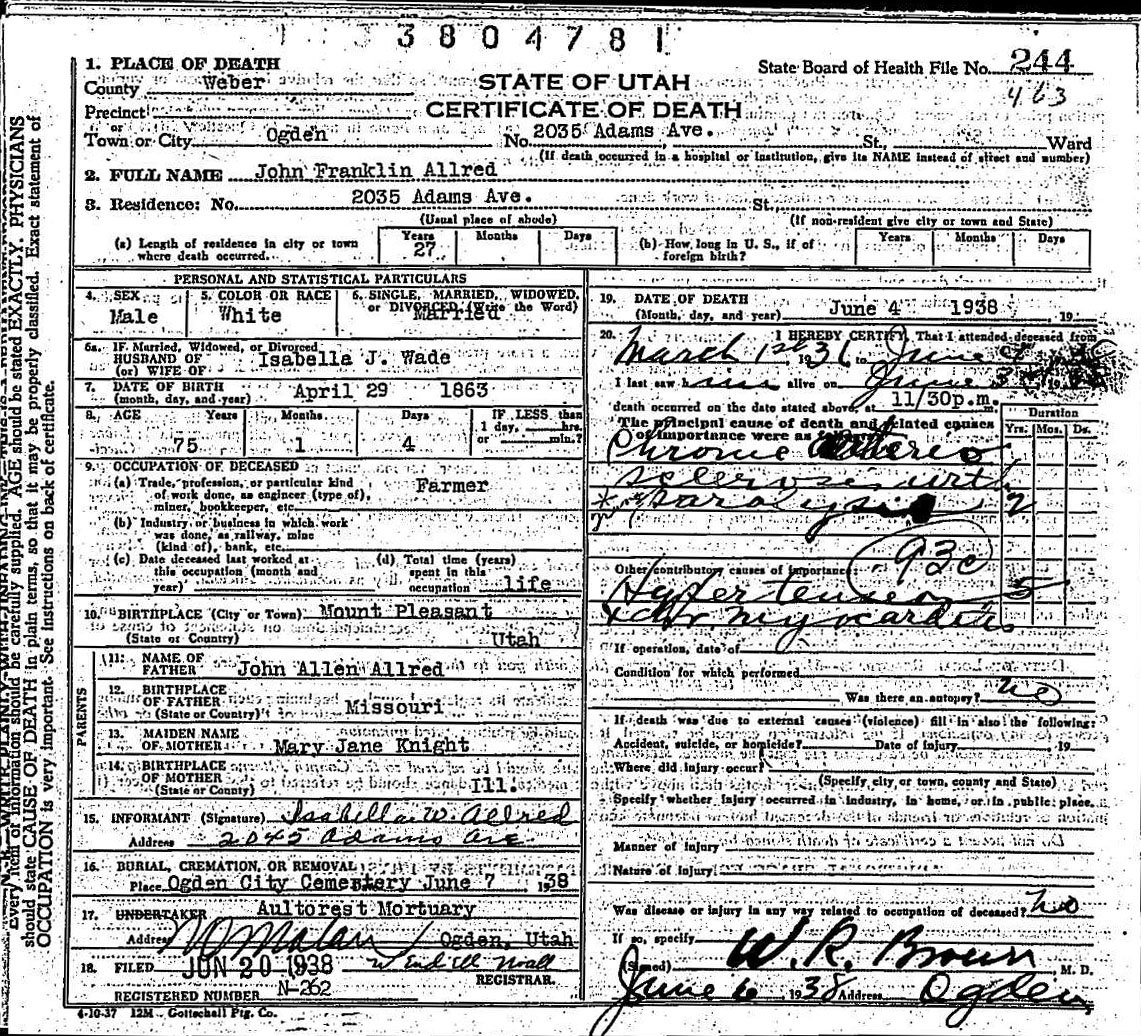 3804781
1. PLACE OF DEATH
County Weber
STATE OF UTAH
CERTIFICATE OF DEATH
State Board of Health File No. 244
463
Precinct
or
Town or City Ogden No. 2035 Adams Ave. St., Ward
(If death occurred in a hospital or institution, give its NAME instead of street and number)
2. FULL NAME John Franklin Allred
3. Residence: No. 2035 Adams Ave. St.
(Usual place of abode) (If non-resident give city or town and State)
(a) Length of residence in city or town where death occurred. Years 27 Months Days
(b) How long in U. S., if of foreign birth? Years Months Days
PERSONAL AND STATISTICAL PARTICULARS
4. SEX Male
5. COLOR OR RACE White
6. SINGLE, MARRIED, WIDOWED, or DIVORCED (Write the Word) Married
6a. IF Married, Widowed, or Divorced
HUSBAND OF
(or) WIFE OF Isabella J. Wade
7. DATE OF BIRTH
(month, day, and year) April 29 1863
8. AGE Years 75 Months 1 Days 4 IF LESS than 1 day, hrs. or min.?
9. OCCUPATION OF DECEASED
(a) Trade, profession, or particular kind of work done, as engineer (type of), miner, bookkeeper, etc. Farmer
(b) Industry or business in which work was done, as railway, mine (kind of), bank, etc.
(c) Date deceased last worked at this occupation (month and year)
(d) Total time (years) spent in this occupation life
10. BIRTHPLACE (City or Town) Mount Pleasant
(State or Country) Utah
PARENTS
11. NAME OF FATHER John Allen Allred
12. BIRTHPLACE OF FATHER
(State or Country) Missouri
13. MAIDEN NAME OF MOTHER Mary Jane Knight
14. BIRTHPLACE OF MOTHER
(State or Country) Ill.
15. INFORMANT (Signature) Isabella W. Allred
Address 2045 Adams Ave
16. BURIAL, CREMATION, OR REMOVAL
Place Ogden City Cementery June 7 1938
17. UNDERTAKER Aultorest Mortuary
Address Ogden, Utah
18. FILED JUN 20 1938
REGISTRAR.
REGISTERED NUMBER N-262
4-10-37 12M Gottschall Ptg. Co.
19. DATE OF DEATH
(Month, day, and year) June 4 1938 19
20. I HEREBY CERTIFY, That I attended deceased from
March 1936 to June
I last saw him alive on June 3 19
death occurred on the date stated above, at 11/30p.m. m.
The principal cause of death and related causes of importance were as
Duration
Yrs. Mos. Ds.
Chronic Arterio
sclerosis
Paralysis 2
93c
Other contributory causes of importance:
Hypertension 5
Chr Myocarditis
If operation, date of
Condition for which performed
Was there an autopsy? no
If death was due to external causes (violence) fill in also the following:
Accident, suicide, or homicide? Date of injury 19
Where did injury occur?
(Specify city or town, county and State)
Specify whether injury occurred in industry, in home, or in public place.
Manner of injury
Nature of injury
Was disease or injury in any way related to occupation of deceased? no
If so, specify
(Signed) W. R. Brown, M. D.
June 6 1938 Address Ogden
Every item of information should be carefully supplied. AGE should be stated EXACTLY. PHYSICIANS
should state CAUSE OF DEATH in plain terms, so that it may be properly classified. Exact statement of
OCCUPATION is very important. See instructions on back of certificate.